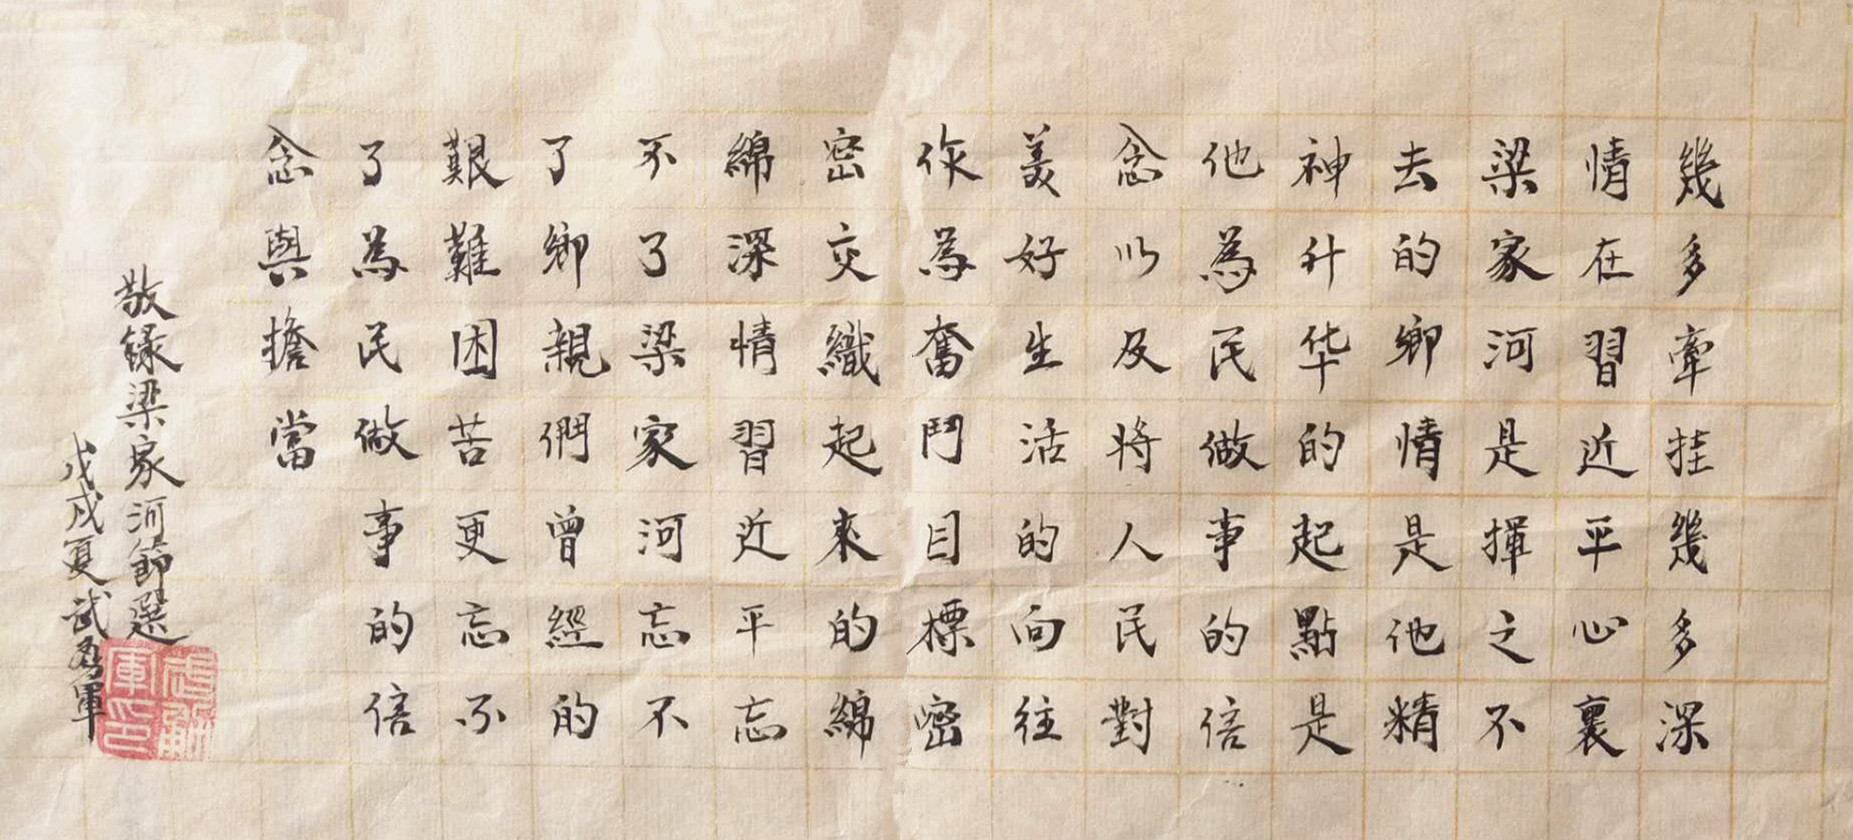 幾多牽挂幾多深
情在習近平心裏
梁家河是揮之不
去的鄉情是他精
神升华的起點是
他為民做事的信
念以及将人民對
美好生活的向往
作為奮鬥目標密
密交織起來的綿
綿深情習近平忘
不了梁家河忘不
了鄉親們曾經的
艱難困苦更忘不
了為民做事的信
念與擔當
敬録梁家河節選
戊戌夏武軍